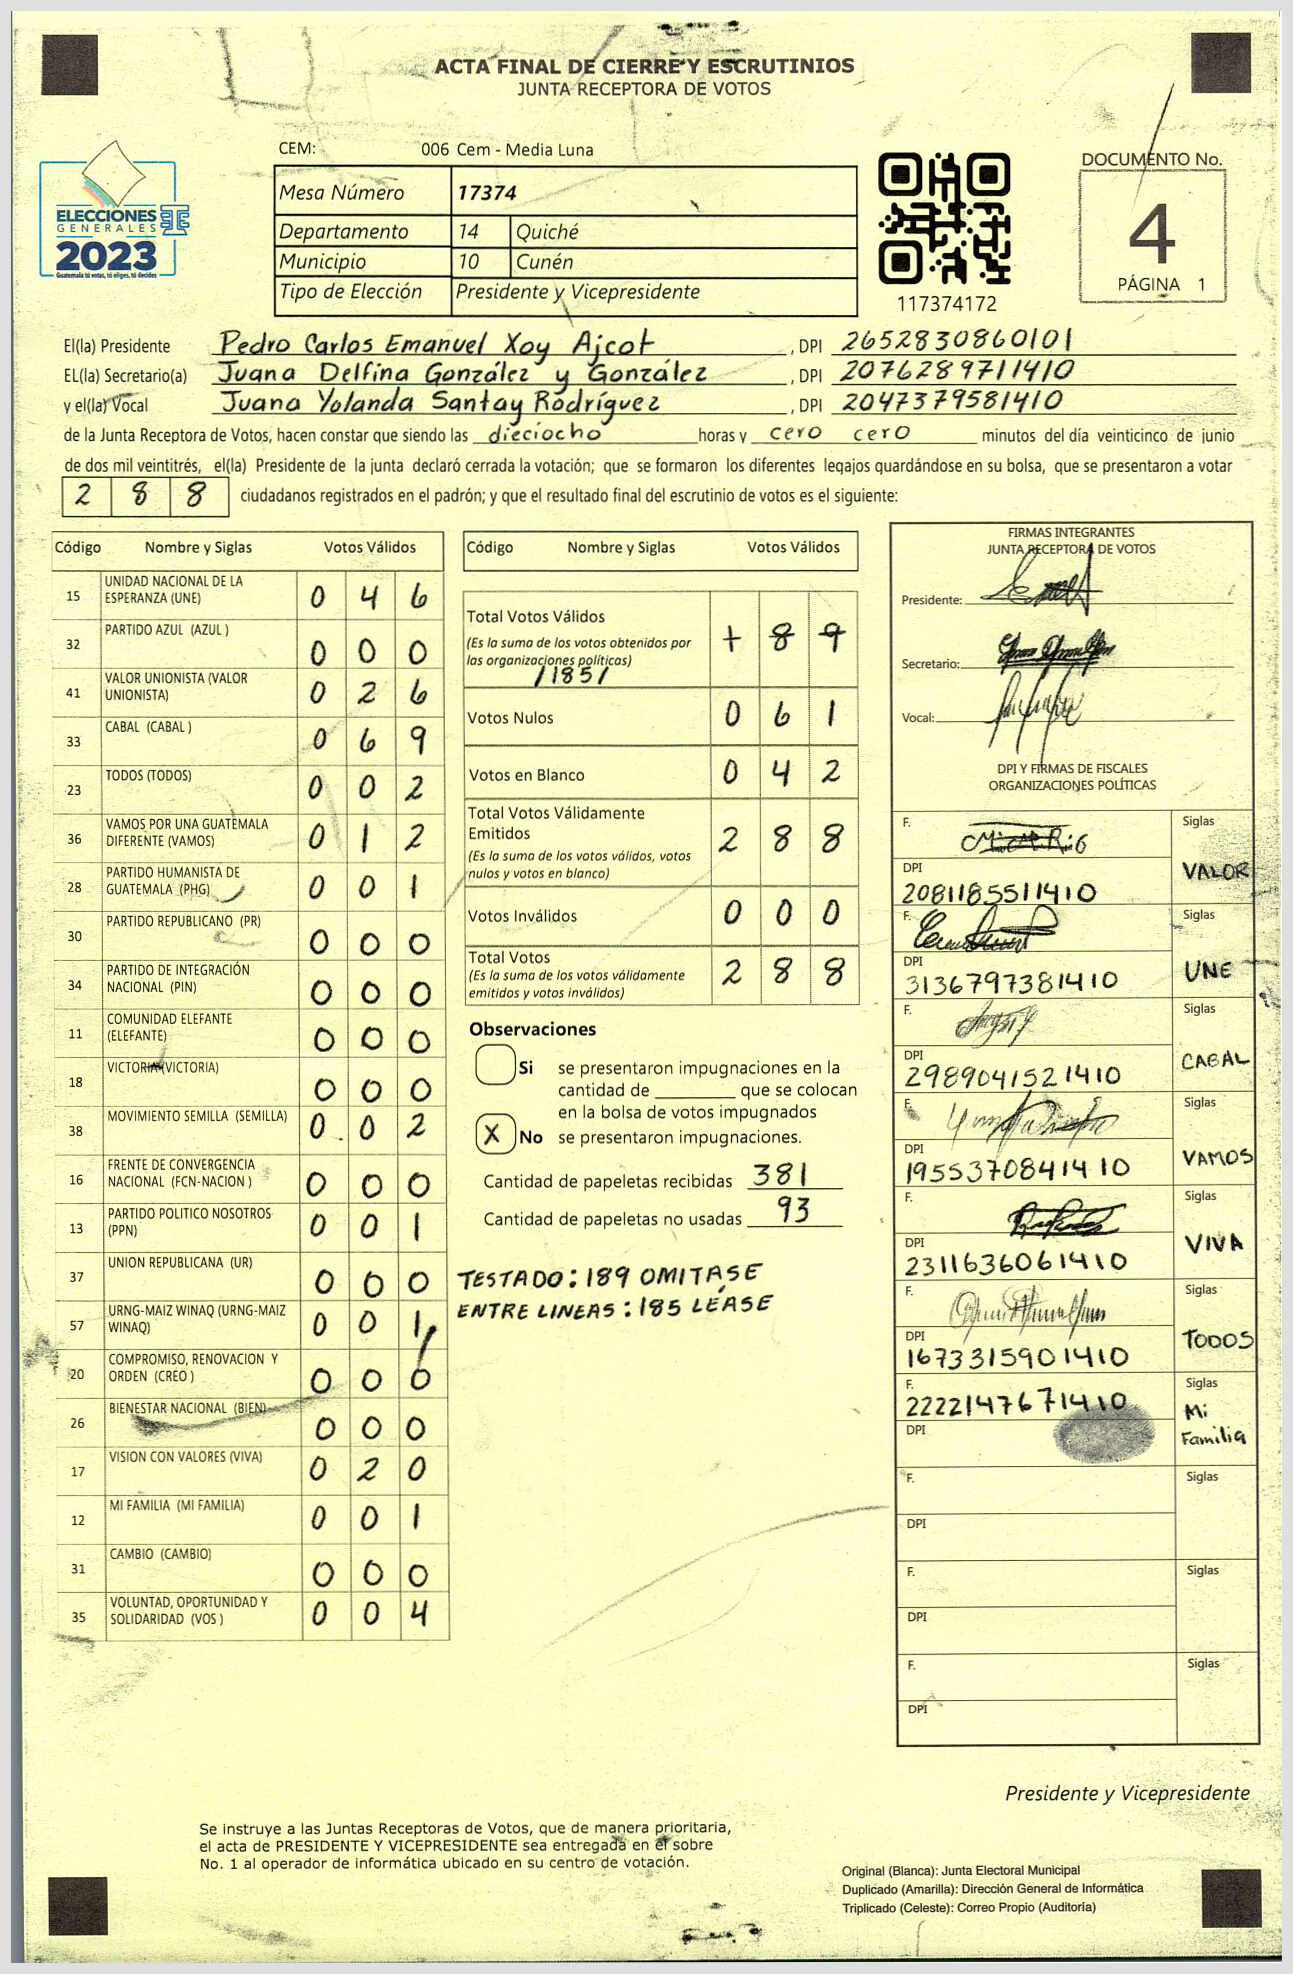 ACTA FINAL DE CIERRE Y ESCRUTINIOS
JUNTA RECEPTORA DE VOTOS
CEM: 006 Cem - Media Luna
Mesa Número 17374
Departamento 14 Quiché
Municipio 10 Cunén
Tipo de Elección Presidente y Vicepresidente
ELECCIONES
GENERALES
2023
Guatemala tú votas, tú eliges, tú decides
117374172
DOCUMENTO No.
4
PÁGINA 1
El(la) Presidente Pedro Carlos Emanuel Xoy Ajcot , DPI 2652830860101
EL(la) Secretario(a) Juana Delfina González y González , DPI 2076289711410
y el(la) Vocal Juana Yolanda Santay Rodríguez , DPI 2047379581410
de la Junta Receptora de Votos, hacen constar que siendo las dieciocho horas y cero cero minutos del día veinticinco de junio
de dos mil veintitrés, el(la) Presidente de la junta declaró cerrada la votación; que se formaron los diferentes legajos quardándose en su bolsa, que se presentaron a votar
2 8 8 ciudadanos registrados en el padrón; y que el resultado final del escrutinio de votos es el siguiente:
Código Nombre y Siglas Votos Válidos
15 UNIDAD NACIONAL DE LA
ESPERANZA (UNE) 0 4 6
32 PARTIDO AZUL (AZUL ) 0 0 0
41 VALOR UNIONISTA (VALOR
UNIONISTA) 0 2 6
33 CABAL (CABAL ) 0 6 9
23 TODOS (TODOS) 0 0 2
36 VAMOS POR UNA GUATEMALA
DIFERENTE (VAMOS) 0 1 2
28 PARTIDO HUMANISTA DE
GUATEMALA (PHG) 0 0 1
30 PARTIDO REPUBLICANO (PR) 0 0 0
34 PARTIDO DE INTEGRACIÓN
NACIONAL (PIN) 0 0 0
11 COMUNIDAD ELEFANTE
(ELEFANTE) 0 0 0
18 VICTORIA (VICTORIA) 0 0 0
38 MOVIMIENTO SEMILLA (SEMILLA) 0 0 2
16 FRENTE DE CONVERGENCIA
NACIONAL (FCN-NACION ) 0 0 0
13 PARTIDO POLITICO NOSOTROS
(PPN) 0 0 1
37 UNION REPUBLICANA (UR) 0 0 0
57 URNG-MAIZ WINAQ (URNG-MAIZ
WINAQ) 0 0 1
20 COMPROMISO, RENOVACION Y
ORDEN (CREO ) 0 0 0
26 BIENESTAR NACIONAL (BIEN) 0 0 0
17 VISION CON VALORES (VIVA) 0 2 0
12 MI FAMILIA (MI FAMILIA) 0 0 1
31 CAMBIO (CAMBIO) 0 0 0
35 VOLUNTAD, OPORTUNIDAD Y
SOLIDARIDAD (VOS ) 0 0 4
Código Nombre y Siglas Votos Válidos
Total Votos Válidos 1 8 9
(Es la suma de los votos obtenidos por
las organizaciones políticas)
/185/
Votos Nulos 0 6 1
Votos en Blanco 0 4 2
Total Votos Válidamente
Emitidos 2 8 8
(Es la suma de los votos válidos, votos
nulos y votos en blanco)
Votos Inválidos 0 0 0
Total Votos 2 8 8
(Es la suma de los votos válidamente
emitidos y votos inválidos)
Observaciones
Si se presentaron impugnaciones en la
cantidad de ________ que se colocan
en la bolsa de votos impugnados
X No se presentaron impugnaciones.
Cantidad de papeletas recibidas 381
Cantidad de papeletas no usadas 93
TESTADO: 189 OMITASE
ENTRE LINEAS: 185 LÉASE
FIRMAS INTEGRANTES
JUNTA RECEPTORA DE VOTOS
Presidente:
Secretario:
Vocal:
DPI Y FIRMAS DE FISCALES
ORGANIZACIONES POLÍTICAS
F. Siglas
DPI VALOR
2081185511410
F. Siglas
DPI UNE
3136797381410
F. Siglas
DPI CABAL
2989041521410
F. Siglas
DPI VAMOS
1955370841410
F. Siglas
DPI VIVA
2311636061410
F. Siglas
DPI TODOS
1673315901410
F. Siglas
2222147671410 Mi
DPI Familia
F. Siglas
DPI
F. Siglas
DPI
F. Siglas
DPI
Presidente y Vicepresidente
Se instruye a las Juntas Receptoras de Votos, que de manera prioritaria,
el acta de PRESIDENTE Y VICEPRESIDENTE sea entregada en el sobre
No. 1 al operador de informática ubicado en su centro de votación.
Original (Blanca): Junta Electoral Municipal
Duplicado (Amarilla): Dirección General de Informática
Triplicado (Celeste): Correo Propio (Auditoría)